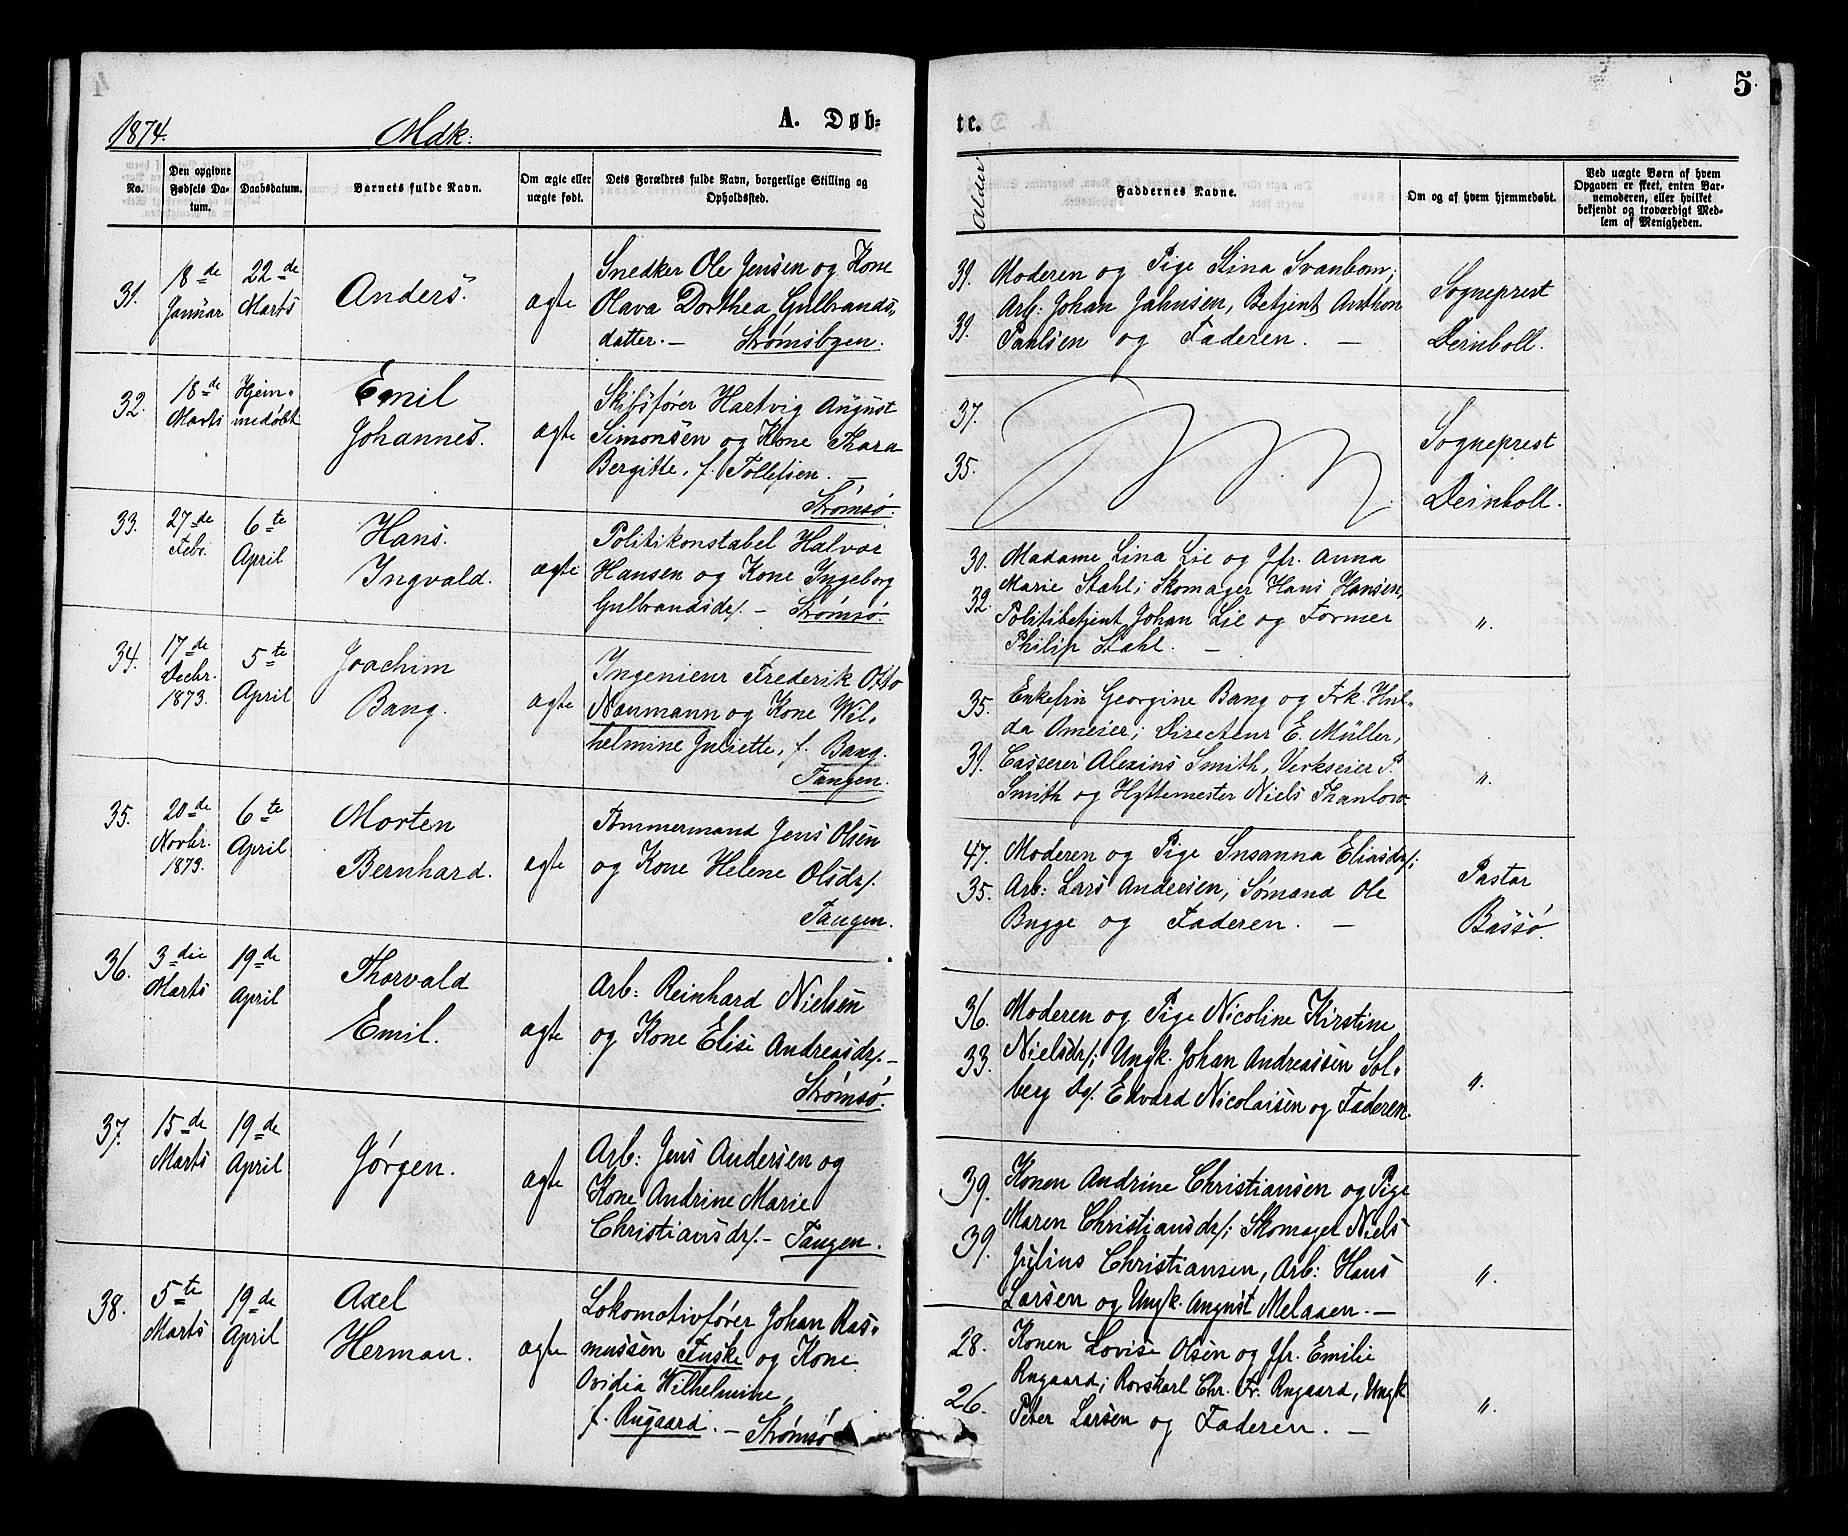 1874.
Mdk:
A. Døb-
te.
5.
No.
Den opgivne Fødsels Da-
tum.
Daabsdatum.
Barnets fulde Navn.
Om ægte eller
uægte født.
Dets Forældres fulde Navn, borgerlige Stilling og
Opholdssted.
Alder
Faddernes Navne.
Om og af hvem hjemmedøbt.
Ved uægte Børn af hvem
Opgaven er skeet, enten Bar-
nemoderen, eller hvilket
bekjendt og troværdigt Med-
lem af Menigheden.
31.
18de
Januar
22de
Marts
Anders.
ægte
Snedker Ole Jensen og Kone
Olava Dorthea Gulbrands-
datter. — Strømsbyen.
39.
39.
Moderen og Pige Stina Svanbom;
Arb: Johan Jahnsen, Betjent Anthon
Paulsen og Faderen. —
Sogneprest
Deinboll.
32.
18de
Marts
Hjem-
medøbt
Emil
Johannes.
ægte
Skibsfører Hartvig August
Simonsen og Kone Thara
Bergitte, f. Tollefsen. —
Strømsø.
37.
35.
Sogneprest
Deinboll.
33.
27de
Febr.
6te
April
Hans.
Ingvald.
ægte
Politikonstabel Halvor
Hansen og Kone Ingeborg
Gulbrandsd/. — Strømsø.
30.
32.
Madame Lina Lie og Jfr. Anna
Marie Stahl; Skomager Hans Hansen,
Politibetjent Johan Lie og Former
Philip Stahl. —
".
34.
17de
Decbr.
1873.
5te
April
Joachim
Bang.
ægte
Ingenieur Frederik Otto
Naumann og Kone Wil-
helmine Juliette, f. Bang.
Tangen.
35.
39.
Enkefru Georgine Bang og Frk. Hul-
da Ameier; Directeur E. Müller,
Casserer Alexius Smith, Verkseier P.
Smith og Hyttemester Niels Thanlow.
".
35.
20de
Novbr.
1873.
6te
April
Morten
Bernhard.
ægte
Tømmermand Jens Olsen
og Kone Helene Olsdr/.
Tangen.
47.
35.
Moderen og Pige Susanna Eliasdr/;
Arb: Lars Andersen, Sømand Ole
Bugge og Faderen. —
Pastor
Bassø.
36.
3die
Marts
19de
April
Thorvald
Emil.
ægte
Arb: Reinhard Nielsen
og Kone Elise Andreasdr/. —
Strømsø.
36.
33.
Moderen og Pige Nicoline Kirstine
Nielsdr/; Ungk. Johan Andreassen Sol-
berg Do/. Edvard Nicolaisen og Faderen.
".
37.
15de
Marts
19de
April
Jørgen.
ægte
Arb: Jens Andersen og
Kone Andrine Marie
Christiansdr/. — Tangen.
39.
39.
Konen Andrine Christiansen og Pige
Maren Christiansdr/; Skomager Niels
Julius Christiansen, Arb: Hans
Larsen og Ungk. August Melaaen. —
".
38.
5te
Marts
19de
April
Axel
Herman.
ægte
Lokomotivfører Johan Ras-
mussen Fuske og Kone
Ovidia Wilhelmine,
f. Rugaard. — Strømsø
28.
26.
Konen Lovise Olsen og Jfr. Emilie
Rugaard; Rorskarl Chr. Fr. Rugaard, Ungk.
Peter Larsen og Faderen. —
".